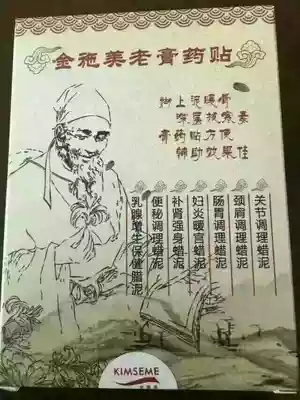 金施美老膏药贴
脚上泥暖骨
深层祛寒毒
膏药贴方便
辅助效果佳
关节调理蜡泥
颈肩调理蜡泥
肠胃调理蜡泥
妇炎暖宫蜡泥
补肾强身蜡泥
便秘调理蜡泥
乳腺增生保健脂泥
KIMSEME